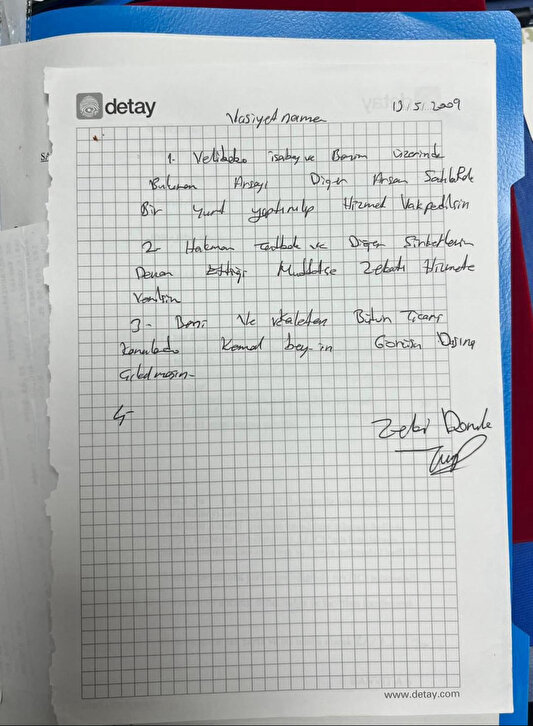 detay
13.5.2009
Vasiyetname
1. Velibaba isabey ve Benim üzerimde
Bulunan Arsayı Diğer Arsan Satılıpda
Bir yurt yaptırılıp Hizmet Vakfedilsin
2- Hakman ve Diğer Şirketlerin
Devam Ettiği Müddetçe Zekatı Hizmete
Verilsin
3- Beni Vekaleten Bütün Ticari
konularda Kemal bey-in Görüşü Dışına
Çıkılmasın-
4-
Zeki
www.detay.com